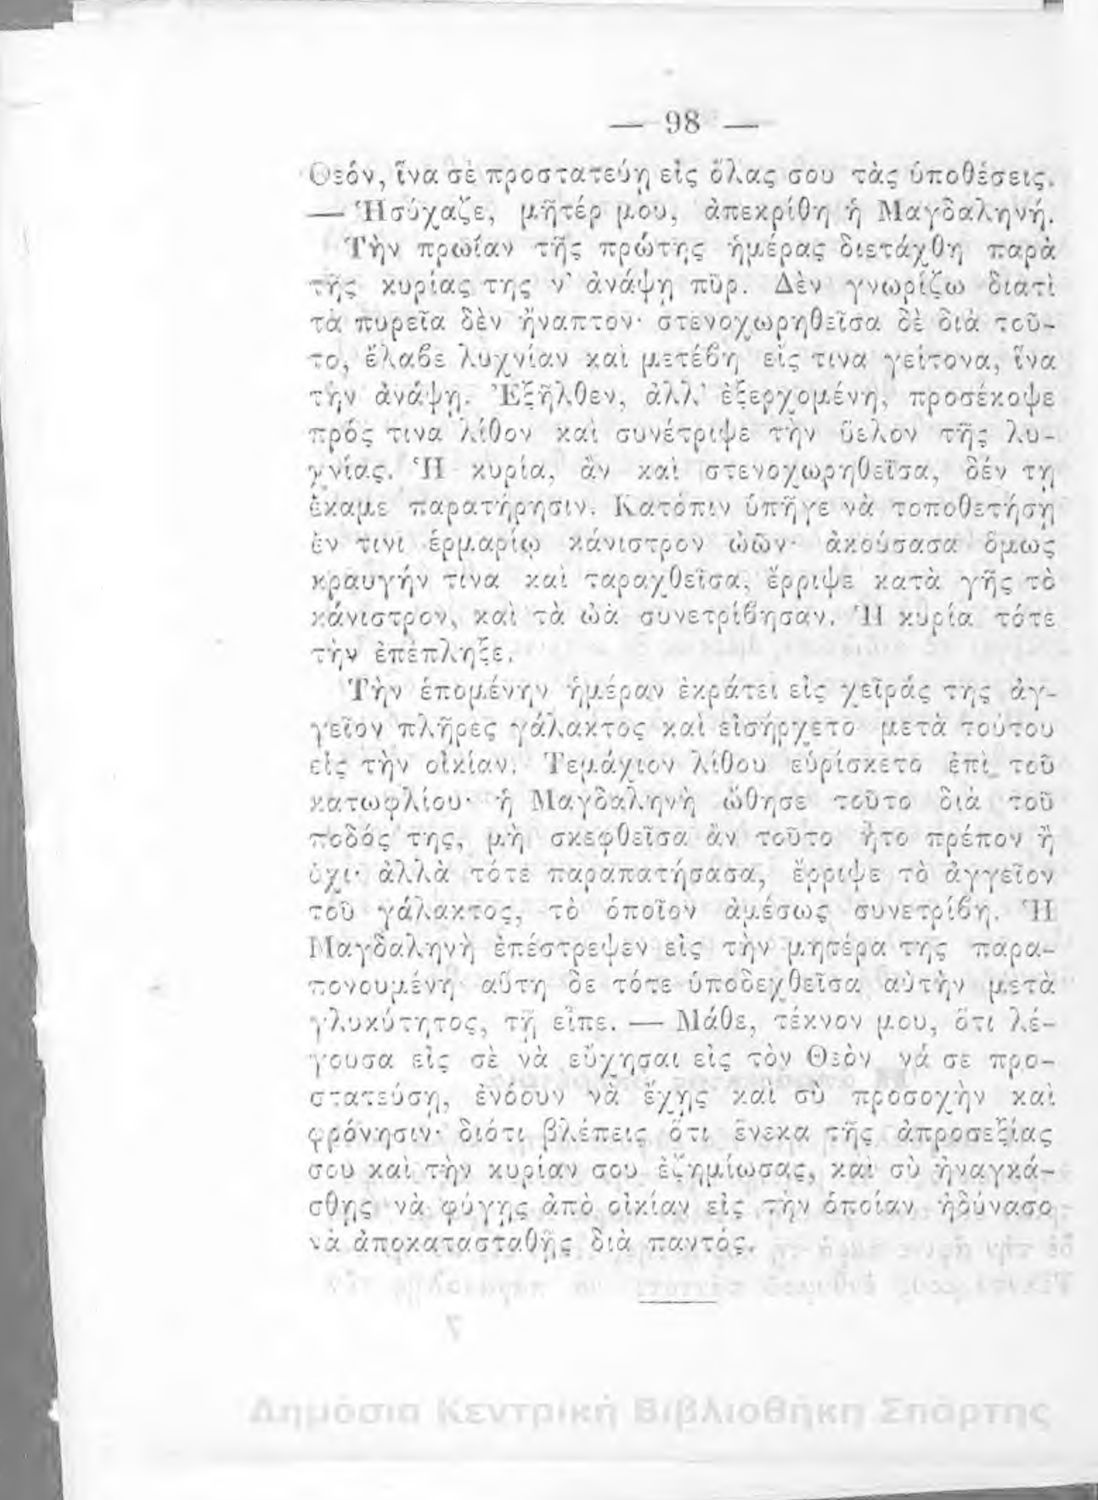 — 98 —
Θεόν, ἵνα σὲ προστατεύῃ εἰς ὅλας σου τὰς ὑποθέσεις.
— Ἡσύχαζε, μῆτέρ μου, ἀπεκρίθη ἡ Μαγδαληνή.
Τὴν πρωΐαν τῆς πρώτης ἡμέρας διετάχθη παρὰ
τῆς κυρίας της ν' ἀνάψῃ πῦρ. Δὲν γνωρίζω διατὶ
τὰ πυρεῖα δὲν ἤναπτον· στενοχωρηθεῖσα δὲ διὰ τοῦ-
το, ἔλαβε λυχνίαν καὶ μετέβη εἴς τινα γείτονα, ἵνα
τὴν ἀνάψῃ. Ἐξῆλθεν, ἀλλ' ἐξερχομένη, προσέκοψε
πρός τινα λίθον καὶ συνέτριψε τὴν ὕελον τῆς λυ-
χνίας. Ἡ κυρία, ἂν καὶ στενοχωρηθεῖσα, δέν τῃ
ἔκαμε παρατήρησιν. Κατόπιν ὑπῆγε νὰ τοποθετήσῃ
ἔν τινι ἑρμαρίῳ κάνιστρον ὠῶν· ἀκούσασα ὅμως
κραυγήν τινα καὶ ταραχθεῖσα, ἔρριψε κατὰ γῆς τὸ
κάνιστρον, καὶ τὰ ὠὰ συνετρίβησαν. Ἡ κυρία τότε
τὴν ἐπέπληξε.
Τὴν ἑπομένην ἡμέραν ἐκράτει εἰς χεῖράς της ἀγ-
γεῖον πλῆρες γάλακτος καὶ εἰσήρχετο μετὰ τούτου
εἰς τὴν οἰκίαν. Τεμάχιον λίθου εὑρίσκετο ἐπὶ τοῦ
κατωφλίου· ἡ Μαγδαληνὴ ὤθησε τοῦτο διὰ τοῦ
ποδός της, μὴ σκεφθεῖσα ἂν τοῦτο ἦτο πρέπον ἢ
ὄχι· ἀλλὰ τότε παραπατήσασα, ἔρριψε τὸ ἀγγεῖον
τοῦ γάλακτος, τὸ ὁποῖον ἀμέσως συνετρίβη. Ἡ
Μαγδαληνὴ ἐπέστρεψεν εἰς τὴν μητέρα της παρα-
πονουμένη· αὕτη δὲ τότε ὑποδεχθεῖσα αὐτὴν μετὰ
γλυκύτητος, τῇ εἶπε. — Μάθε, τέκνον μου, ὅτι λέ-
γουσα εἰς σὲ νὰ εὔχησαι εἰς τὸν Θεὸν νά σε προ-
στατεύσῃ, ἐνόουν νὰ ἔχῃς καὶ σὺ προσοχὴν καὶ
φρόνησιν· διότι βλέπεις ὅτι ἕνεκα τῆς ἀπροσεξίας
σου καὶ τὴν κυρίαν σου ἐζημίωσας, καὶ σὺ ἠναγκά-
σθης νὰ φύγῃς ἀπὸ οἰκίαν εἰς τὴν ὁποίαν ἠδύνασο
νὰ ἀποκατασταθῇς διὰ παντός.
Δημόσια Κεντρική Βιβλιοθήκη Σπάρτης